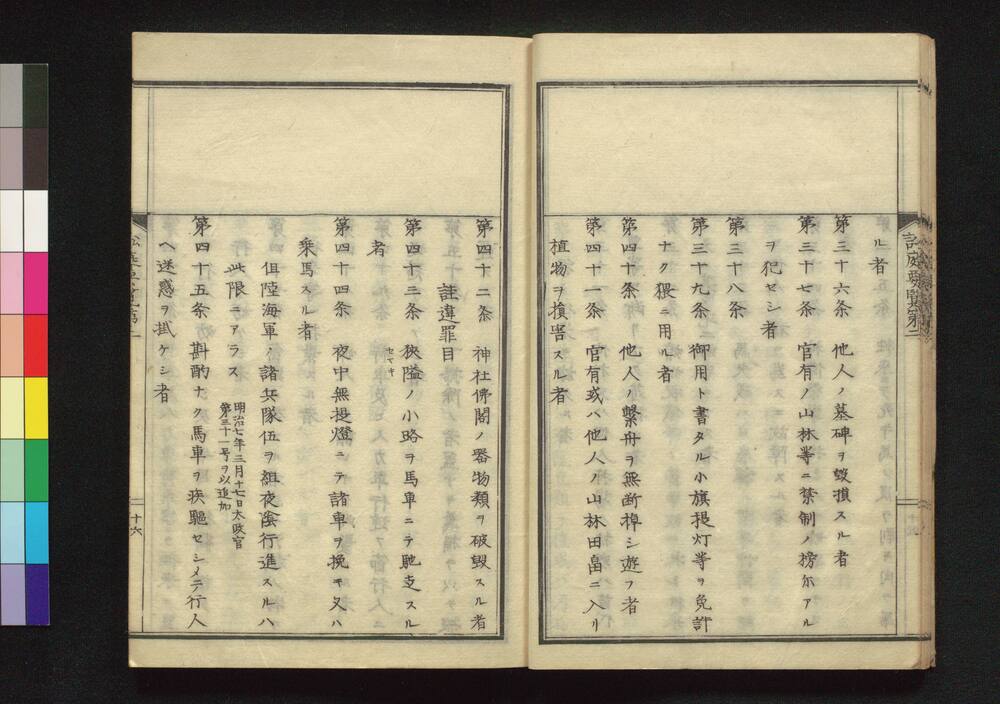 ル者
第三十六条 他人ノ墓碑ヲ毀損スル者
第三十七条 官有ノ山林等ニ禁制ノ榜示アル
ヲ犯セシ者
第三十八条
第三十九条 御用ト書タル小旗提灯等ヲ免許
ナク猥ニ用ル者
第四十条 他人ノ繋舟ヲ無断棹シ遊フ者
第四十一条 官有或ハ他人ノ山林田畠ニ入リ
植物ヲ損害スル者
第四十二条 神社佛閣ノ器物類ヲ破毀スル者
註違罪目
第四十三条 狹隘ノ小路ヲ馬車ニテ馳走スル
者
第四十四条 夜中無提燈ニテ諸車ヲ挽キ又ハ
乗馬スル者
但陸海軍ノ諸兵隊伍ヲ組夜陰行進スルハ
此限ニアラス
明治七年三月十七日太政官
第三十一号ヲ以追加
第四十五条 斟酌ナク馬車ヲ疾驅セシメテ行人
ヘ迷惑ヲ掛ケシ者
十六